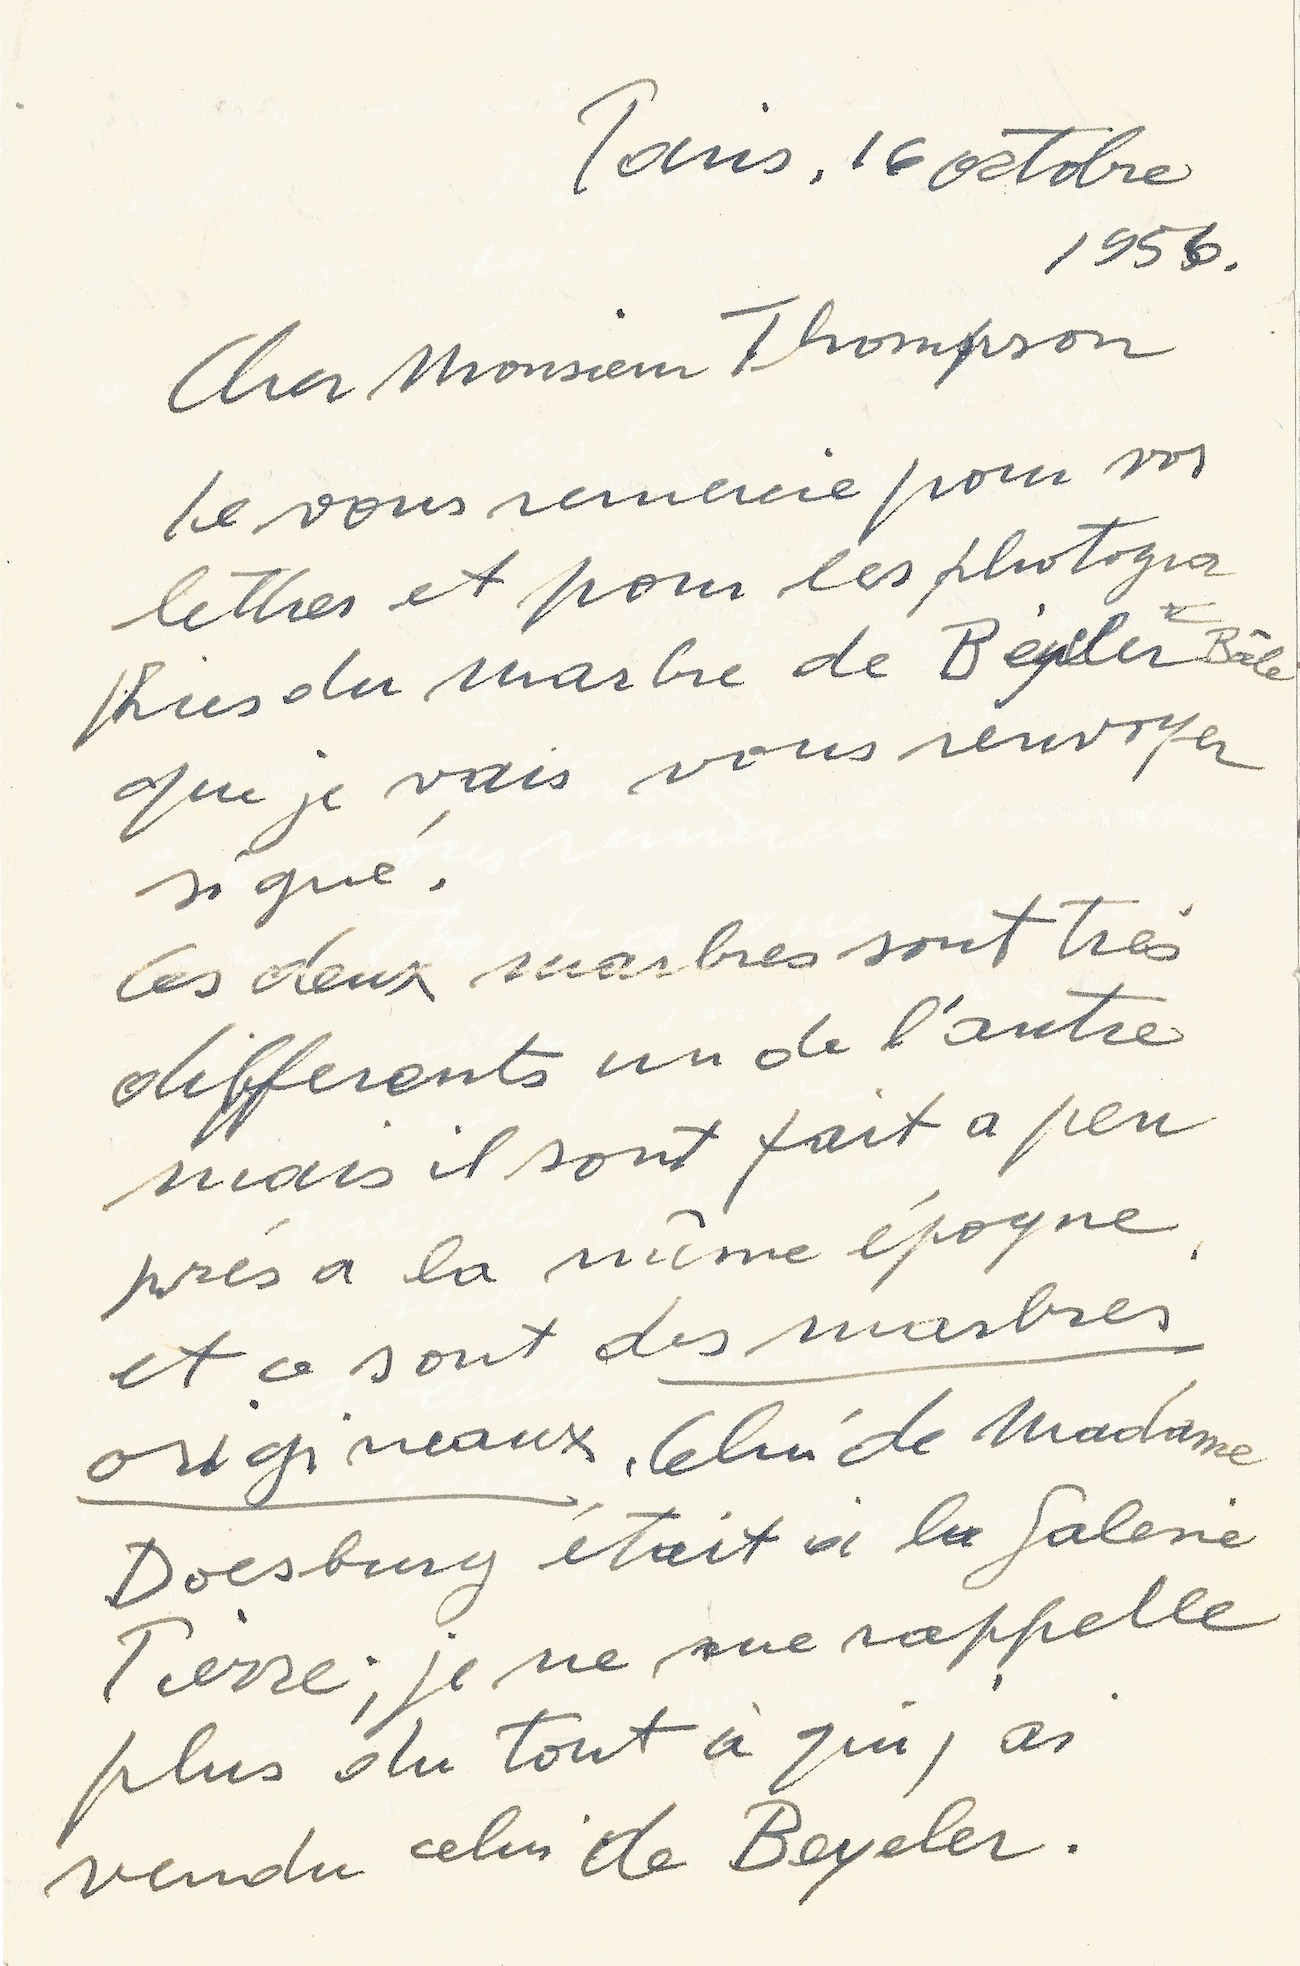 Paris, 16 octobre
1956.
Cher Monsieur Thompson
Je vous remercie pour vos
lettres et pour les photogra
phies du marbre de Beyeler Bâle
que je vais vous renvoyer
signé.
Ces deux marbres sont très
differents un de l'autre
mais il sont fait a peu
prés a la même époque,
et ce sont des marbres
origineaux. Celui de Madame
Doesburg était à la Galerie
Pierre; je ne me rappelle
plus du tout à qui j'ai
vendu celui de Beyeler.